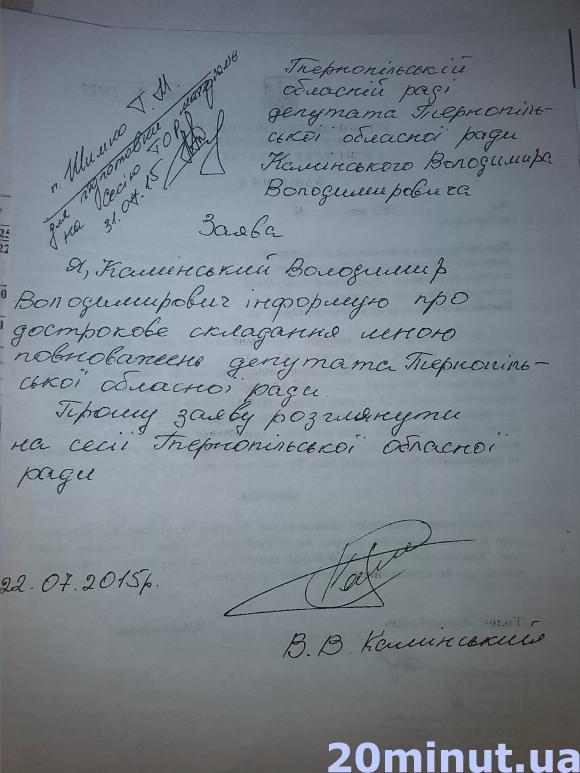 п. Шимко Т. М.
для підготовки матеріалів
на сесію ТОР
31.07.15
Тернопільській
обласній раді
депутата Тернопіль-
ської обласної ради
Камінського Володимира
Володимировича
Заява
Я, Камінський Володимир
Володимирович інформую про
дострокове складання мною
повноважень депутата Тернопіль-
ської обласної ради.
Прошу заяву розглянути
на сесії Тернопільської обласної
ради
22.07.2015р.
В. В. Камінський
20minut.ua